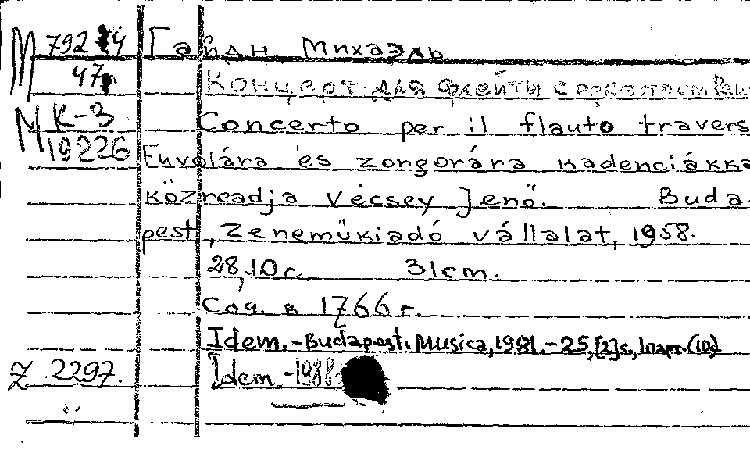 М 792 Гайдн Михаэль
47 Концерт для флейты с оркестром
М К-3 Concerto per il flauto travers
19226 Fuvolára és zongorára kadenciákka
közreadja Vécsey Jenő. Buda-
pest, Zeneműkiadó vállalat, 1958.
28, 10 с. 31cm.
Соч. в 1766 г.
Idem. - Budapest: Musica, 1981. - 25, [2] s., 1 парт. (10)
Z 2297. Idem. - 1988